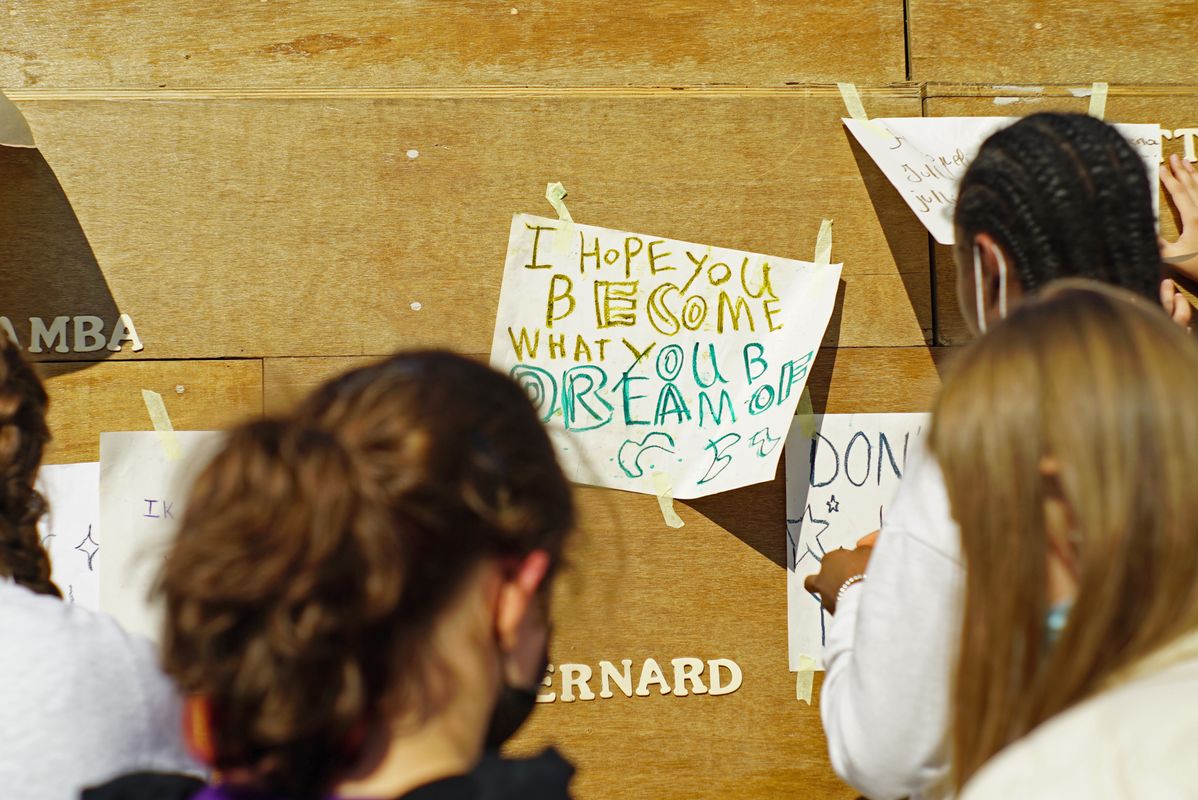 I HOPE YOU
BECOME
WHAT YOU B
DREAM OF
AMBA
IK
DON'
ERNARD